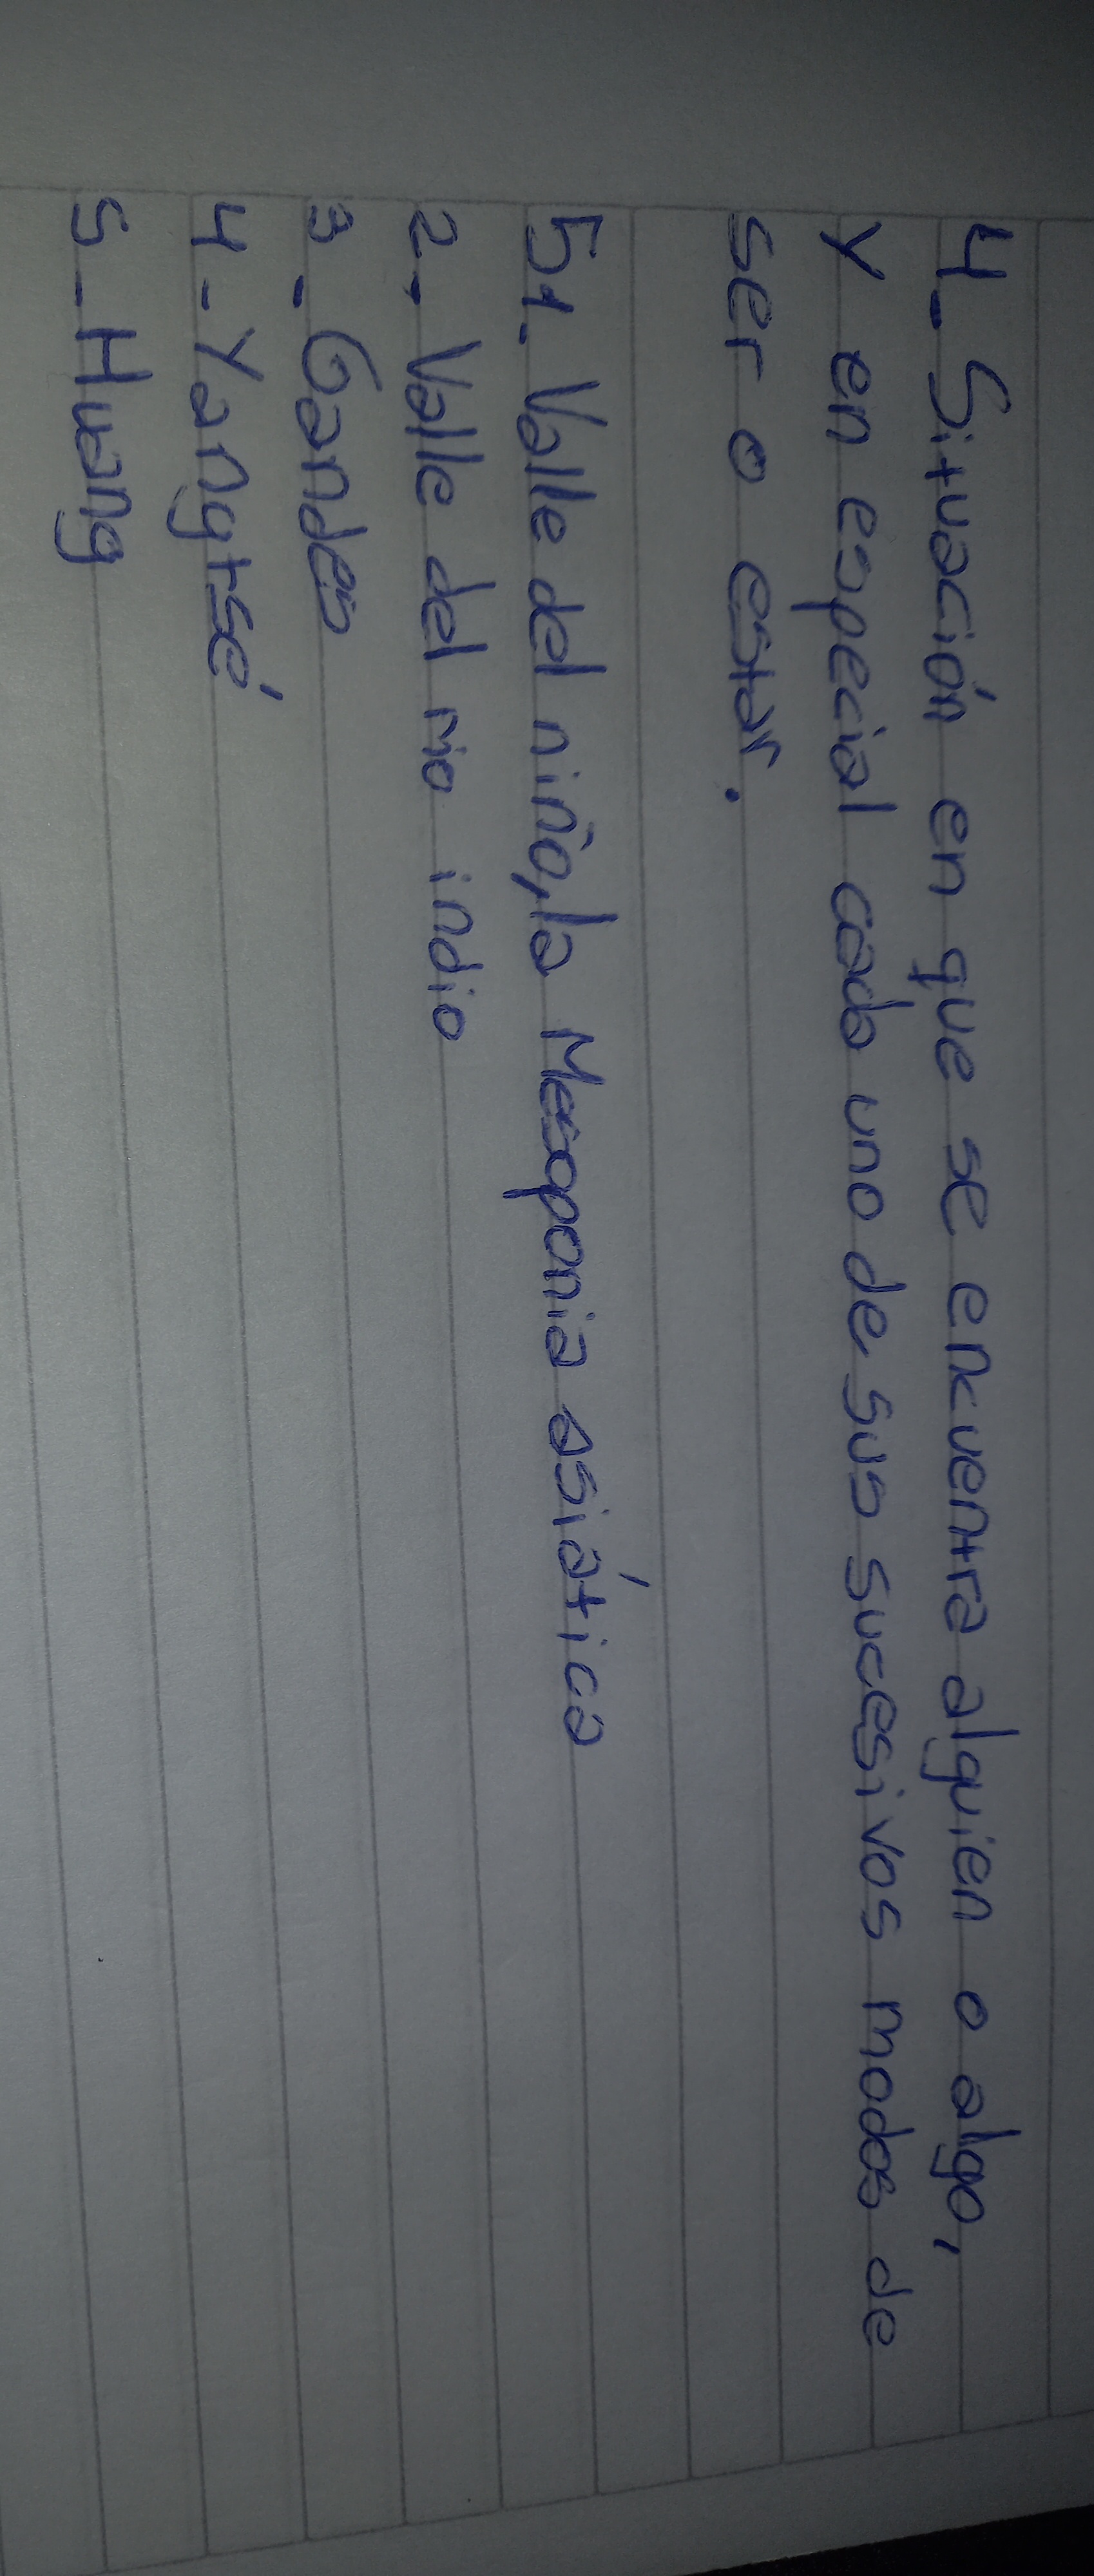 4- Situación en que se encuentra alguien o algo,
y en especial cada uno de sus sucesivos modos de
ser o estar.
51. Valle del niño, la Mesoponia asiática
2. Valle del rio indio
3 - Gandes
4 - Yangtsé
5 - Huang